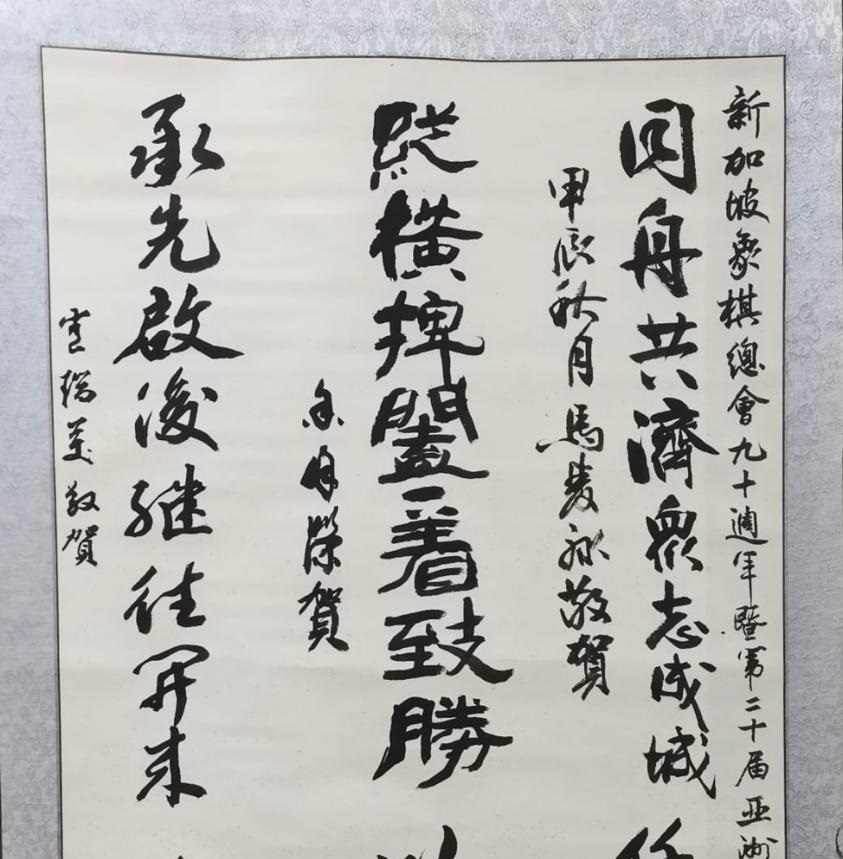 新加坡象棋總會九十週年暨第二十届亞洲
同舟共濟衆志成城
甲辰秋月馬 敬賀
縱橫捭闔一着致勝
月 賀
承先啟後继往開来
敬賀